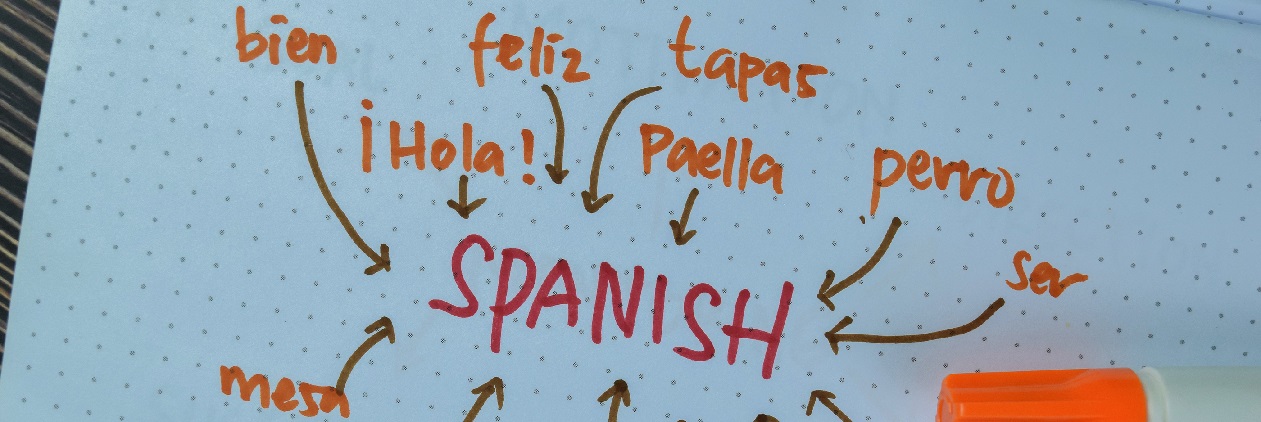 bien
feliz
tapas
¡Hola!
Paella
perro
ser
SPANISH
mesa